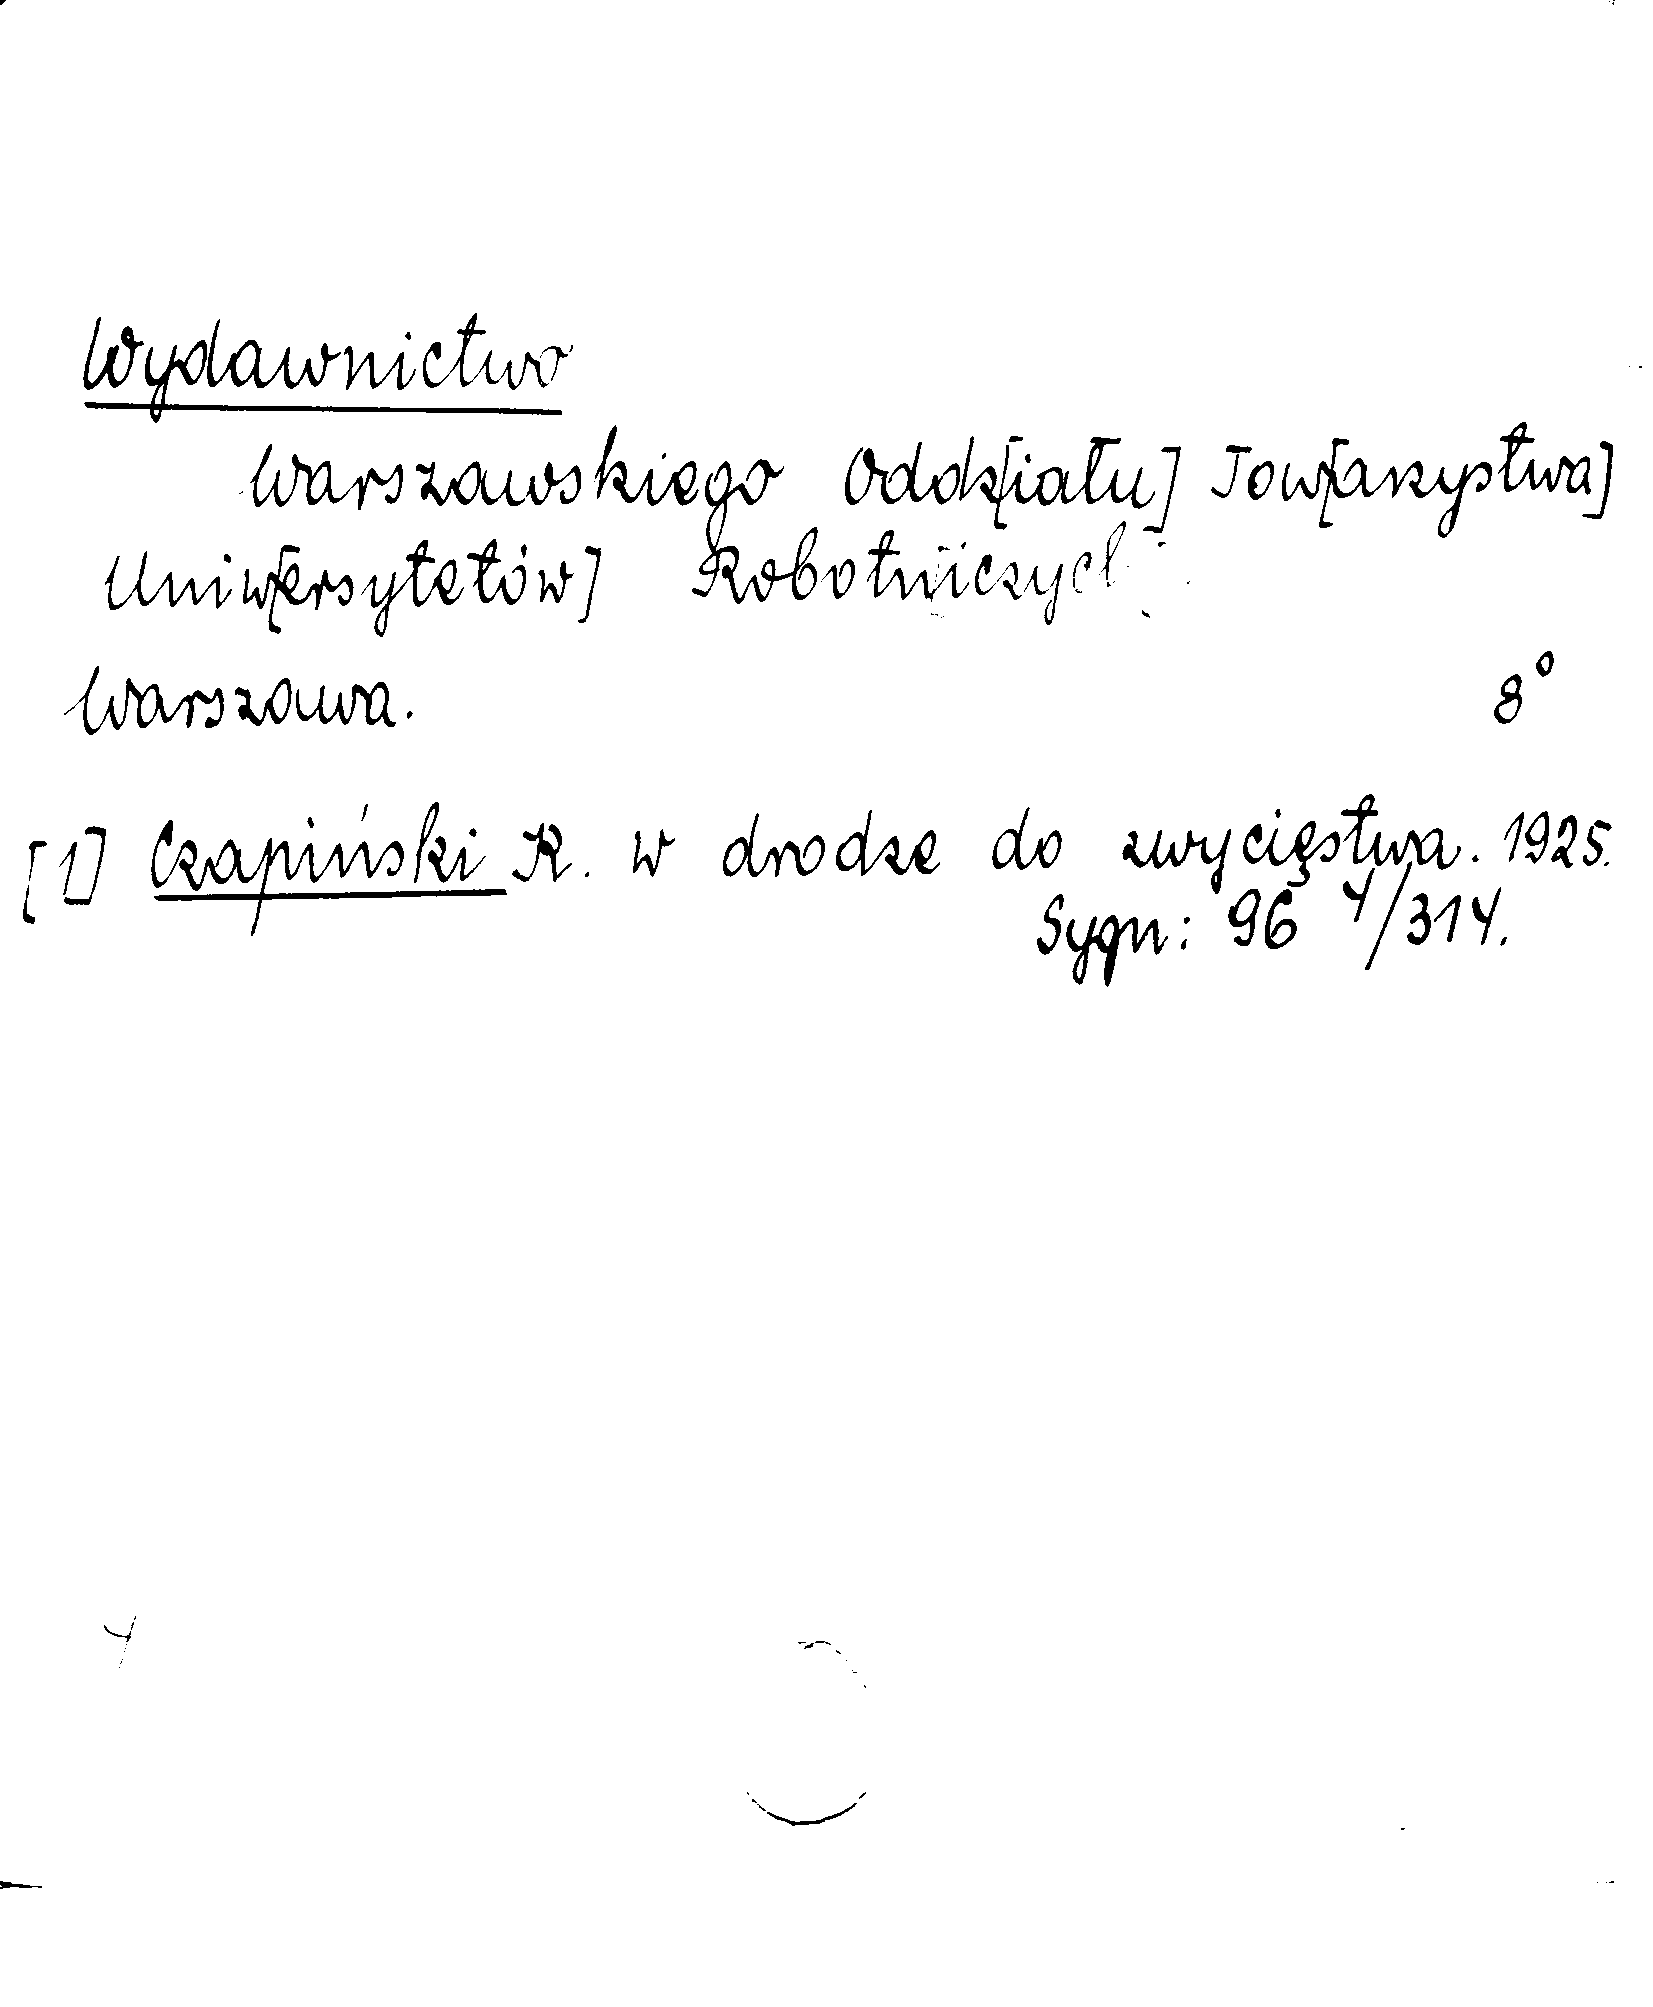 Wydawnictwo
Warszawskiego Oddz[iału] Tow[arzystwa]
Uniw[ersytetów] Robotniczych
Warszawa. 8°
[1] Czapiński K. W drodze do zwycięstwa. 1925.
Sygn: 96 4/314.